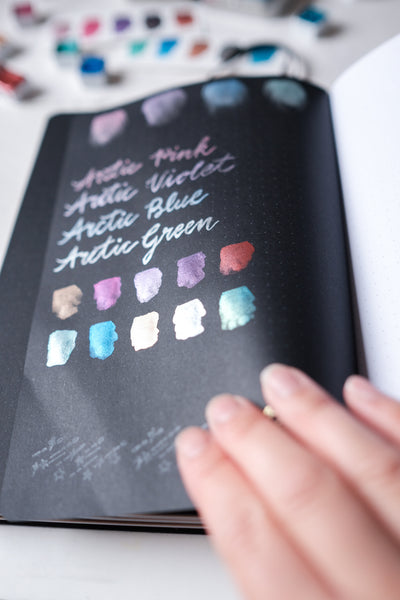 Arctic Pink
Arctic Violet
Arctic Blue
Arctic Green